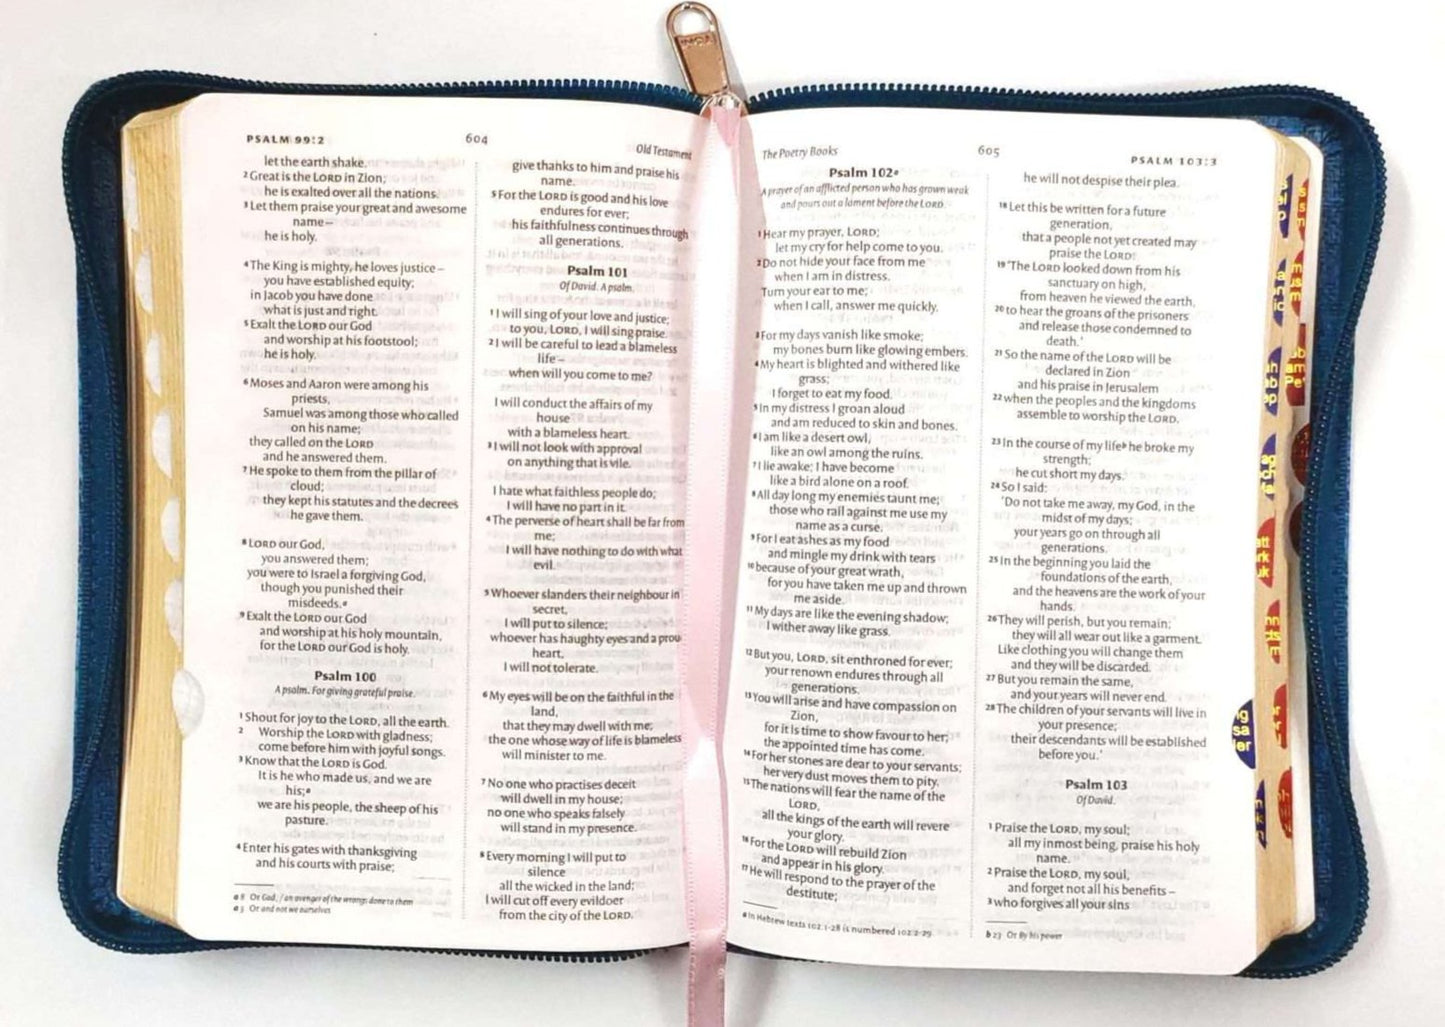 PSALM 99:2
604
Old Testament
let the earth shake.
2 Great is the LORD in Zion;
he is exalted over all the nations.
3 Let them praise your great and awesome
name –
he is holy.
4 The King is mighty, he loves justice –
you have established equity;
in Jacob you have done
what is just and right.
5 Exalt the LORD our God
and worship at his footstool;
he is holy.
6 Moses and Aaron were among his
priests,
Samuel was among those who called
on his name;
they called on the LORD
and he answered them.
7 He spoke to them from the pillar of
cloud;
they kept his statutes and the decrees
he gave them.
8 LORD our God,
you answered them;
you were to Israel a forgiving God,
though you punished their
misdeeds.a
9 Exalt the LORD our God
and worship at his holy mountain,
for the LORD our God is holy.
Psalm 100
A psalm. For giving grateful praise.
1 Shout for joy to the LORD, all the earth.
2 Worship the LORD with gladness;
come before him with joyful songs.
3 Know that the LORD is God.
It is he who made us, and we are
his;a
we are his people, the sheep of his
pasture.
4 Enter his gates with thanksgiving
and his courts with praise;
a 8 Or God, / an avenger of the wrongs done to them
a 3 Or and not we ourselves
give thanks to him and praise his
name.
5 For the LORD is good and his love
endures for ever;
his faithfulness continues through
all generations.
Psalm 101
Of David. A psalm.
1 I will sing of your love and justice;
to you, LORD, I will sing praise.
2 I will be careful to lead a blameless
life –
when will you come to me?
I will conduct the affairs of my
house
with a blameless heart.
3 I will not look with approval
on anything that is vile.
I hate what faithless people do;
I will have no part in it.
4 The perverse of heart shall be far from
me;
I will have nothing to do with what
evil.
5 Whoever slanders their neighbour in
secret,
I will put to silence;
whoever has haughty eyes and a prou
heart,
I will not tolerate.
6 My eyes will be on the faithful in the
land,
that they may dwell with me;
the one whose way of life is blameless
will minister to me.
7 No one who practises deceit
will dwell in my house;
no one who speaks falsely
will stand in my presence.
8 Every morning I will put to
silence
all the wicked in the land;
I will cut off every evildoer
from the city of the LORD.
The Poetry Books
605
PSALM 103:3
Psalm 102a
A prayer of an afflicted person who has grown weak
and pours out a lament before the LORD.
1 Hear my prayer, LORD;
let my cry for help come to you.
2 Do not hide your face from me
when I am in distress.
Turn your ear to me;
when I call, answer me quickly.
3 For my days vanish like smoke;
my bones burn like glowing embers.
4 My heart is blighted and withered like
grass;
I forget to eat my food.
5 In my distress I groan aloud
and am reduced to skin and bones.
6 I am like a desert owl,
like an owl among the ruins.
7 I lie awake; I have become
like a bird alone on a roof.
8 All day long my enemies taunt me;
those who rail against me use my
name as a curse.
9 For I eat ashes as my food
and mingle my drink with tears
10 because of your great wrath,
for you have taken me up and thrown
me aside.
11 My days are like the evening shadow;
I wither away like grass.
12 But you, LORD, sit enthroned for ever;
your renown endures through all
generations.
13 You will arise and have compassion on
Zion,
for it is time to show favour to her;
the appointed time has come.
14 For her stones are dear to your servants;
her very dust moves them to pity.
15 The nations will fear the name of the
LORD,
all the kings of the earth will revere
your glory.
16 For the LORD will rebuild Zion
and appear in his glory.
17 He will respond to the prayer of the
destitute;
a In Hebrew texts 102:1-28 is numbered 102:2-29.
he will not despise their plea.
18 Let this be written for a future
generation,
that a people not yet created may
praise the LORD:
19 'The LORD looked down from his
sanctuary on high,
from heaven he viewed the earth,
20 to hear the groans of the prisoners
and release those condemned to
death.'
21 So the name of the LORD will be
declared in Zion
and his praise in Jerusalem
22 when the peoples and the kingdoms
assemble to worship the LORD.
23 In the course of my lifeb he broke my
strength;
he cut short my days.
24 So I said:
'Do not take me away, my God, in the
midst of my days;
your years go on through all
generations.
25 In the beginning you laid the
foundations of the earth,
and the heavens are the work of your
hands.
26 They will perish, but you remain;
they will all wear out like a garment.
Like clothing you will change them
and they will be discarded.
27 But you remain the same,
and your years will never end.
28 The children of your servants will live in
your presence;
their descendants will be established
before you.'
Psalm 103
Of David.
1 Praise the LORD, my soul;
all my inmost being, praise his holy
name.
2 Praise the LORD, my soul,
and forget not all his benefits –
3 who forgives all your sins
b 23 Or By his power